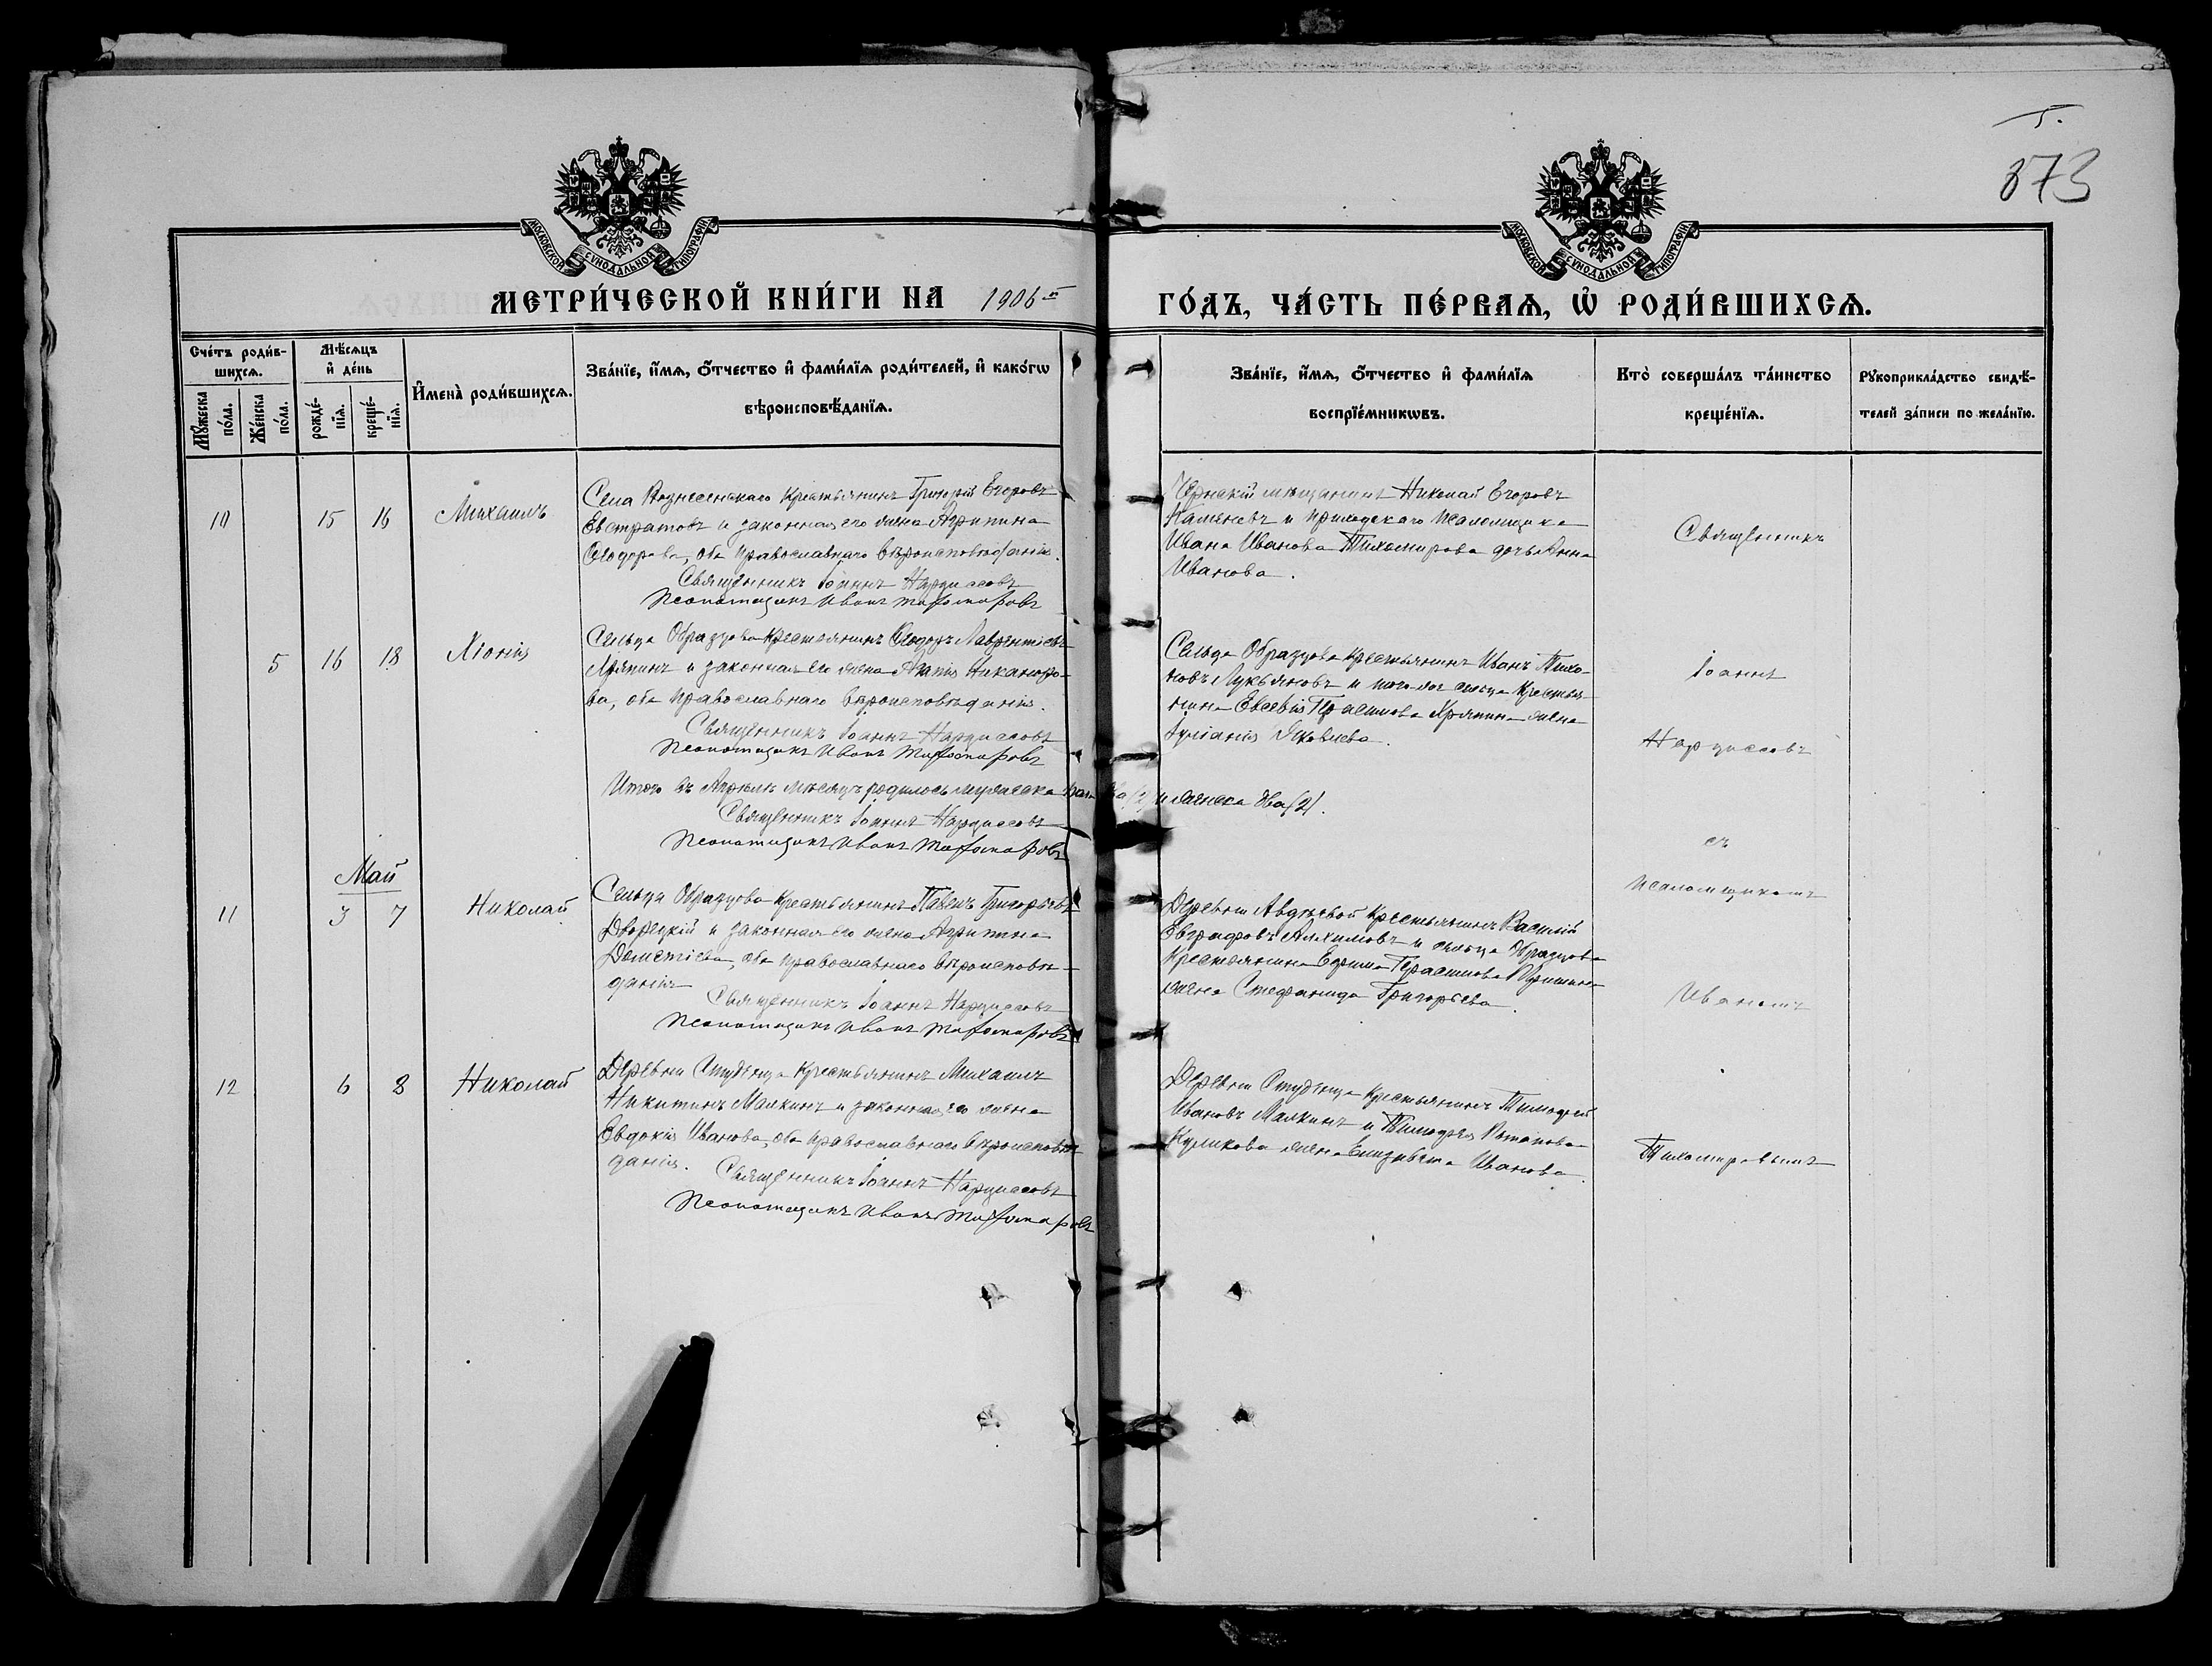 873
МОСКОВСКОЙ СѴНОДАЛЬНОЙ ТИПОГРАФІИ
МОСКОВСКОЙ СѴНОДАЛЬНОЙ ТИПОГРАФІИ
МЕТРИ́ЧЕСКОЙ КНИ́ГИ НА 1906 й ГО́ДЪ, ЧА́СТЬ ПЕ́РВАѦ, Ѽ РОДИ́ВШИХСѦ.
Сче́тъ роди́в-
шихсѧ.
Мꙋ́жеска по́ла.
Же́нска по́ла.
Мѣ́сѧцъ
и҆ де́нь
рожде́-нїѧ.
креще́-нїѧ.
И҆мена̀ роди́вшихсѧ.
Зва́нїе, и҆́мѧ, ѻ҆́тчество и҆ фами́лїѧ роди́телей, и҆ како́гѡ
вѣроисповѣ́данїѧ.
Зва́нїе, и҆́мѧ, ѻ҆́тчество и҆ фами́лїѧ
воспрїе́мникѡвъ.
Кто̀ соверша́лъ та́инство
креще́нїѧ.
Рꙋкоприкла́дство свидѣ́-
телей за́писи по жела́нїю.
10 15 16 Михаилъ
Села Вознесенскаго крестьянинъ Григорій Егоровъ
Евстратовъ и законная его жена Агрипина
Ѳеодорова, оба православнаго вѣроисповѣданія.
Священникъ Іоаннъ Нарциссовъ
Псаломщикъ Иванъ Тихомировъ
Чернскій мѣщанинъ Николай Егоровъ
Каменевъ и приходскаго псаломщика
Ивана Иванова Тихомирова дочь Анна
Иванова.
5 16 18 Хіонія
Сельца Образцова крестьянинъ Ѳеодоръ Лаврентіевъ
и законная его жена Агапія Никаноро-
ва, оба православнаго вѣроисповѣданія.
Священникъ Іоаннъ Нарциссовъ
Псаломщикъ Иванъ Тихомировъ
Сельца Образцова крестьянинъ Иванъ Тихо-
новъ Лукьяновъ и того же сельца крестья-
нина Евсевія Герасимова жена
Іуліанія Яковлева.
Итого въ Апрѣлѣ мѣсяцѣ родилось мужеска пола два (2) и женска два (2).
Священникъ Іоаннъ Нарциссовъ
Псаломщикъ Иванъ Тихомировъ
Май
11 3 7 Николай
Сельца Образцова крестьянинъ Павелъ Григорьевъ
Дворецкій и законная его жена Агрипина
Дометіева, оба православнаго вѣроисповѣ-
данія
Священникъ Іоаннъ Нарциссовъ
Псаломщикъ Иванъ Тихомировъ
Деревни Авдѣевой крестьянинъ Василій
Евграфовъ и сельца Образцова
крестьянина Ефима Герасимова
жена Стефанида Григорьева.
12 6 8 Николай
Деревни Студенца крестьянинъ Михаилъ
Никитинъ Малкинъ и законная его жена
Евдокія Иванова, оба православнаго вѣроисповѣ-
данія.
Священникъ Іоаннъ Нарциссовъ
Псаломщикъ Иванъ Тихомировъ
Деревни Студенца крестьянинъ Тимофей
Ивановъ Малкинъ и Тимофея Потапова
Куликова жена Елизавета Иванова.
Священникъ
Іоаннъ
Нарциссовъ
съ
псаломщикомъ
Иваномъ
Тихомировымъ